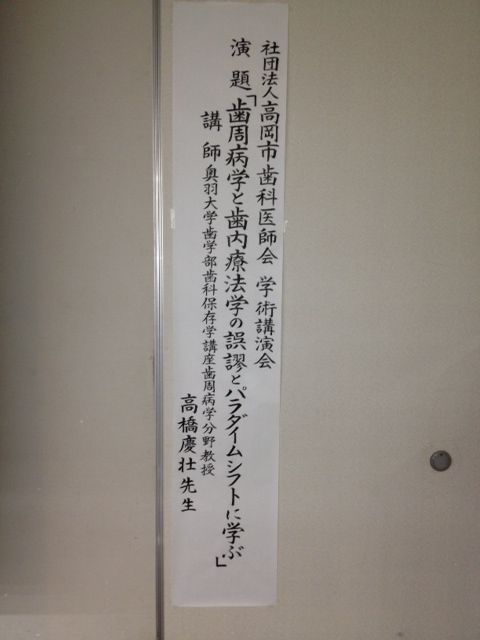 社団法人高岡市歯科医師会 学術講演会
演題「歯周病学と歯内療法学の誤謬とパラダイムシフトに学ぶ」
講師 奥羽大学歯学部歯科保存学講座歯周病学分野教授
高橋慶壮先生